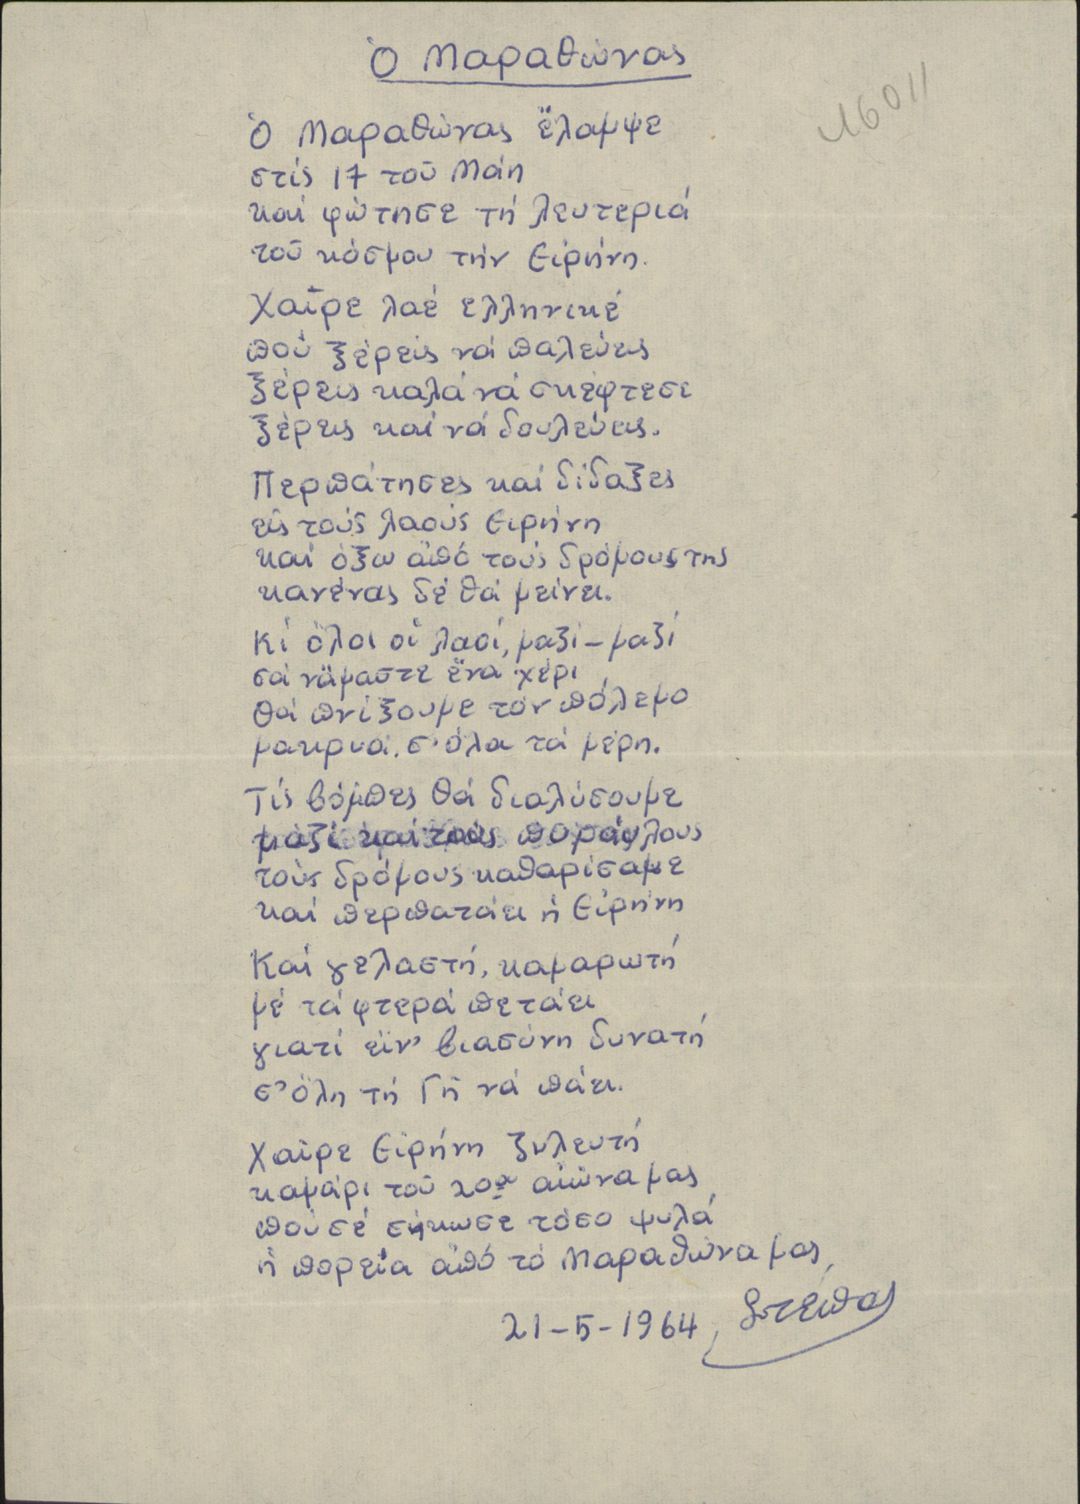 Ὁ Μαραθώνας
16011
Ὁ Μαραθώνας ἔλαμψε
στίς 17 τοῦ Μάη
καί φώτησε τή λευτεριά
τοῦ κόσμου τήν Εἰρήνη.
Χαῖρε λαέ ελληνικέ
πού ξέρεις νά παλεύεις
ξέρεις καλά νά σκέφτεσε
ξέρεις καί νά δουλεύεις.
Περπάτησες καί δίδαξες
εἰς τούς λαούς Ειρήνη
καί ὄξω ἀπό τούς δρόμους της
κανένας δέ θά μείνει.
Κι ὅλοι οἱ λαοί, μαζί - μαζί
σά νἄμαστε ἕνα χέρι
θά πνίξουμε τόν πόλεμο
μακρυά, σ' ὅλα τά μέρη.
Τίς βόμπες θά διαλύσουμε
μαζί καί τούς πυραύλους
τούς δρόμους καθαρίσαμε
καί περπατάει ἡ Εἰρήνη
Καί γελαστή, καμαρωτή
μέ τά φτερά πετάει
γιατί εἶν' βιασύνη δυνατή
σ' ὅλη τή Γῆ νά πάει.
Χαῖρε Εἰρήνη ζηλευτή
καμάρι τοῦ 20οῦ αἰώνα μας
πού σέ σήκωσε τόσο ψυλά
ἡ πορεία ἀπό τό Μαραθώνα μας
21-5-1964